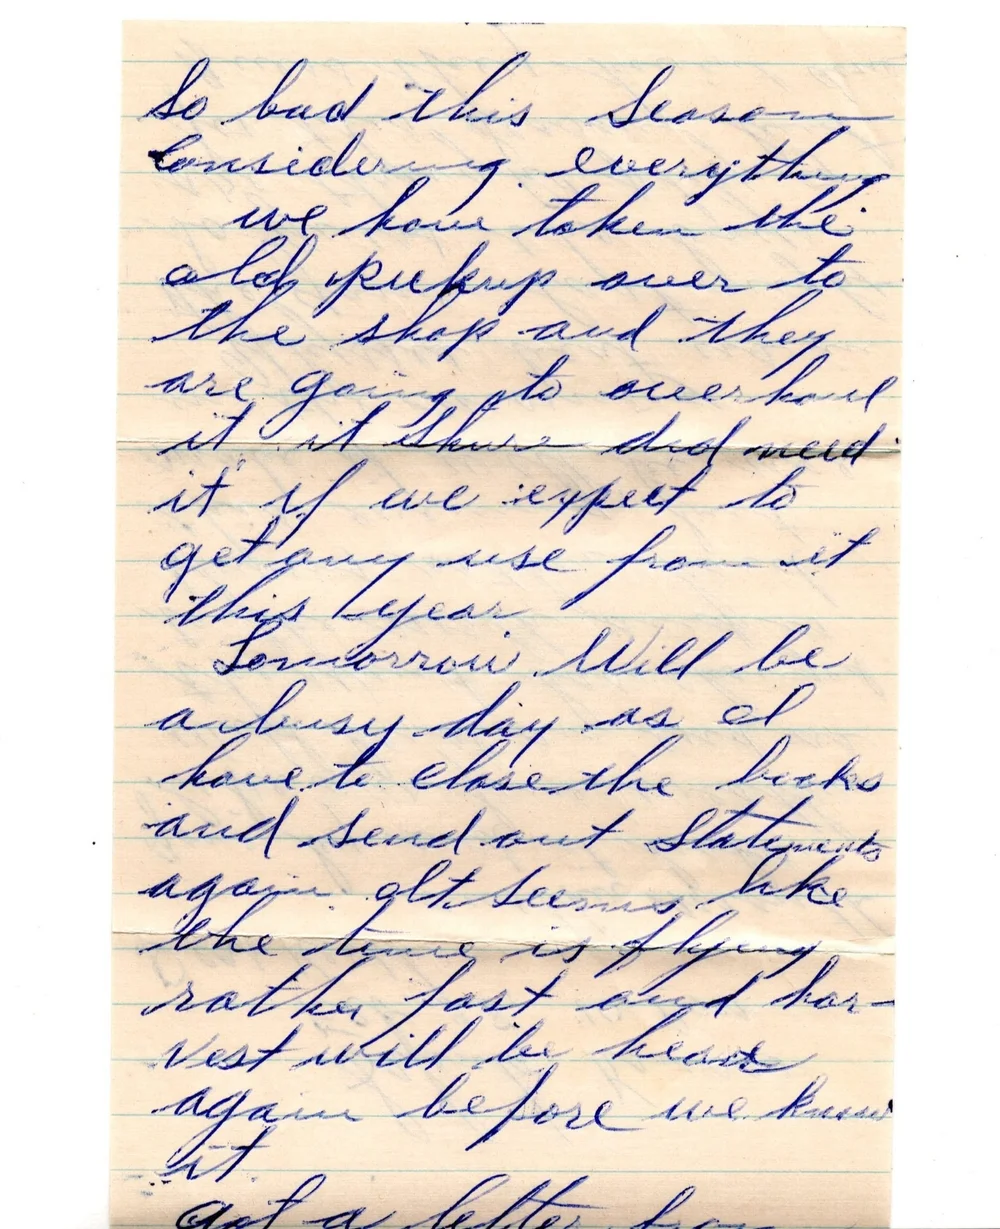 So bad this Season
Considering everything
we have taken the
old pickup over to
the shop and they
are going to overhaul
it it shure did need
it if we expect to
get any use from it
this year
Tomorrow Will be
a busy day as I
have to close the books
and send out Statements
again It seems like
the time is flying
rather fast and har-
vest will be here
again before we know
it
Got a letter from